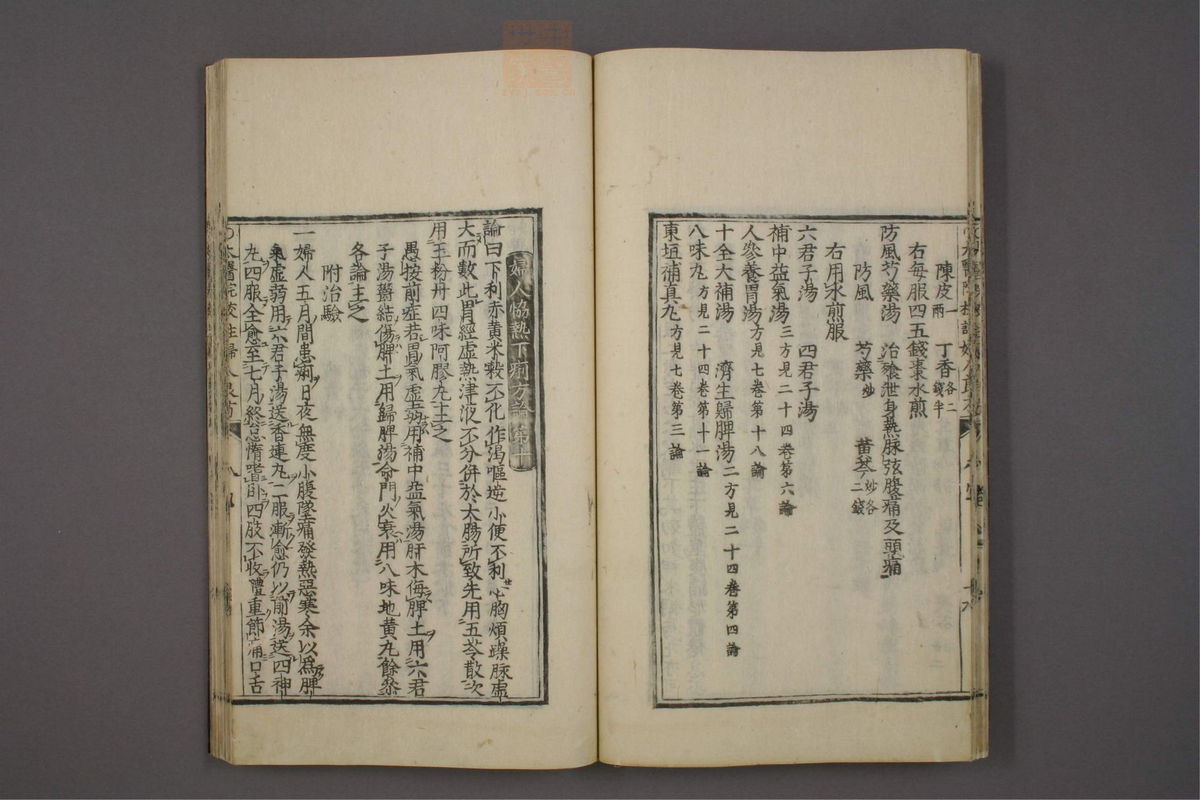 陳皮一兩　丁香各二錢半
右每服四五錢棗水煎
防風芍藥湯　治飱泄身熱脉弦腹痛及頭痛
防風　芍藥炒　黄芩炒各二錢
右用水煎服
六君子湯　四君子湯
補中益氣湯三方見二十四卷第六論
人參養胃湯方見七卷第十八論
十全大補湯　濟生歸脾湯二方見二十四卷第四論
八味丸方見二十四卷第十一論
東垣補真丸方見七卷第三論
婦人協熱下痢方論第十
論曰下利赤黄米穀不化作渴嘔逆小便不利心胸煩躁脉虛
大而數此胃經虛熱津液不分併於大腸所致先用五苓散次
用玉粉丹四味阿膠丸主之
愚按前症若胃氣虚弱用補中益氣湯肝木侮脾土用六君
子湯鬱結傷脾土用歸脾湯命門火衰用八味地黄丸餘叅
各論主之
附治驗
一婦人五月間患痢日夜無度小腹墜痛發熱惡寒余以爲脾
氣虛弱用六君子湯送香連丸二服漸愈仍以前湯送四神
丸四服全愈至七月終怠惰嗜卧四肢不收體重節痛口舌
太醫院校註婦人良方 八